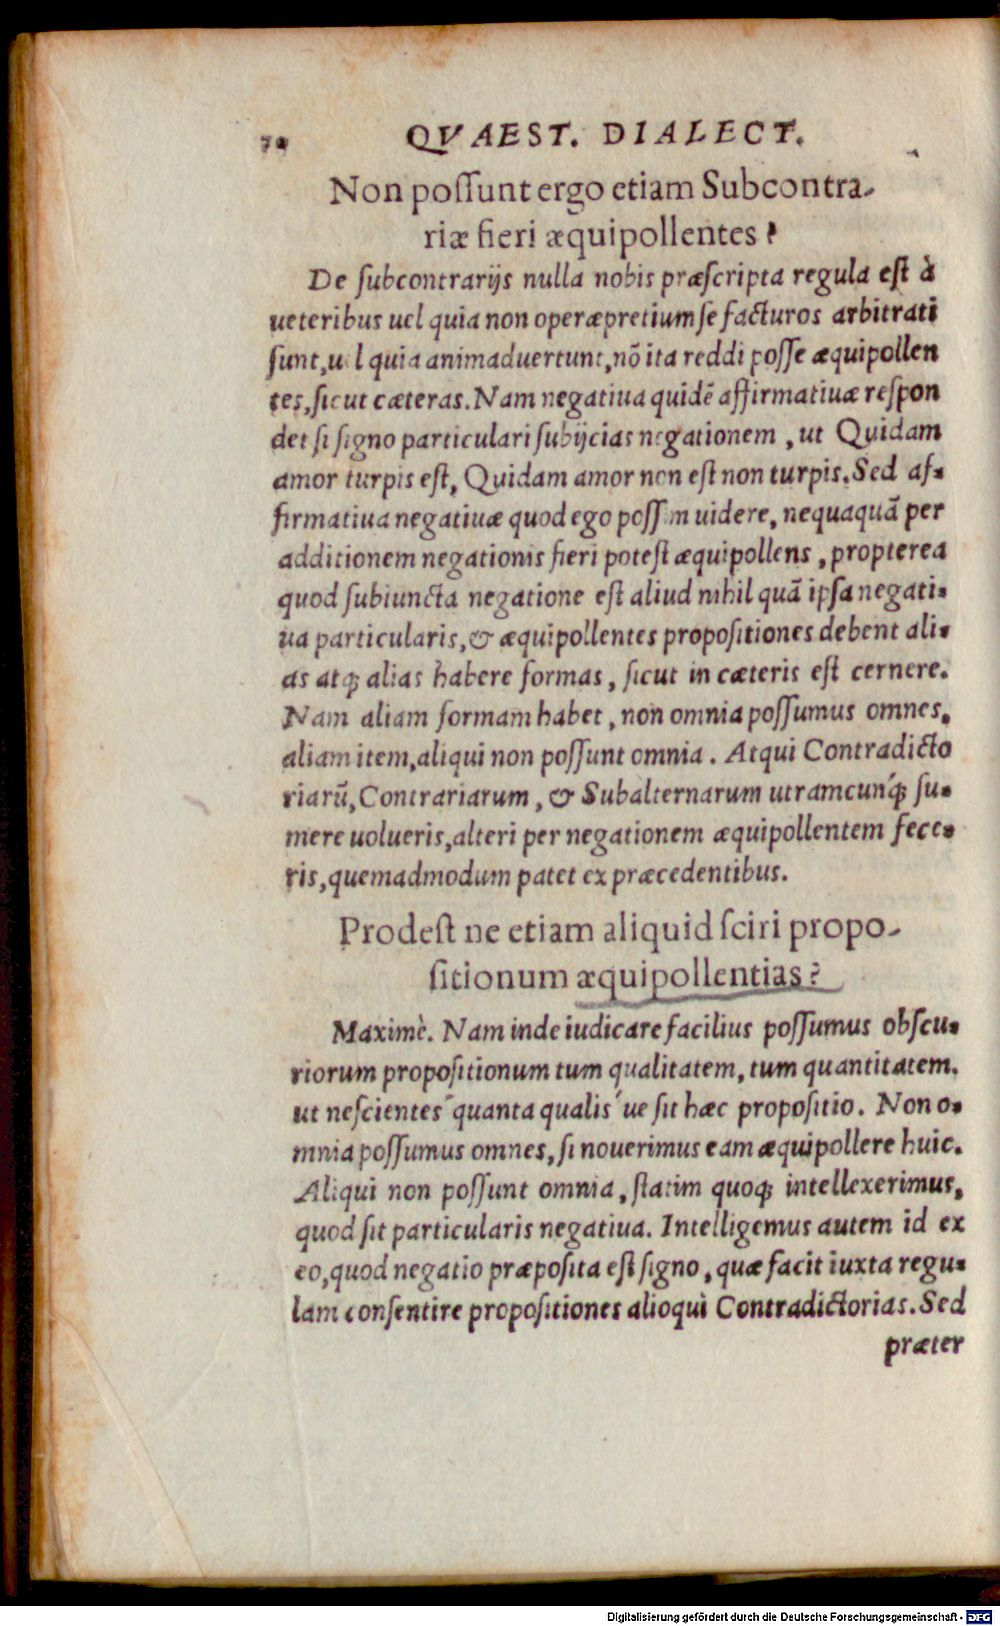 70 QVAEST. DIALECT.
Non possunt ergo etiam Subcontra-
riæ fieri æquipollentes?
De subcontrarijs nulla nobis præscripta regula est à
ueteribus uel quia non operæpretium se facturos arbitrati
sunt, uel quia animaduertunt, nõ ita reddi posse æquipollen
tes, sicut cæteras. Nam negatiua quidẽ affirmatiuæ respon
det si signo particulari subijcias negationem, ut Quidam
amor turpis est, Quidam amor non est non turpis. Sed af-
firmatiua negatiuæ quod ego possim uidere, nequaquã per
additionem negationis fieri potest æquipollens, propterea
quod subiuncta negatione est aliud nihil quã ipsa negati-
ua particularis, & æquipollentes propositiones debent ali-
as atq; alias habere formas, sicut in cæteris est cernere.
Nam aliam formam habet, non omnia possumus omnes,
aliam item, aliqui non possunt omnia. Atqui Contradicto
riarũ, Contrariarum, & Subalternarum utramcunq; su-
mere uolueris, alteri per negationem æquipollentem fece-
ris, quemadmodum patet ex præcedentibus.
Prodest ne etiam aliquid sciri propo-
sitionum æquipollentias?
Maximè. Nam inde iudicare facilius possumus obscu-
riorum propositionum tum qualitatem, tum quantitatem.
ut nescientes quanta qualis ue sit hæc propositio. Non o-
mnia possumus omnes, si nouerimus eam æquipollere huic.
Aliqui non possunt omnia, statim quoq; intellexerimus,
quod sit particularis negatiua. Intelligemus autem id ex
eo, quod negatio præposita est signo, quæ facit iuxta regu-
lam consentire propositiones alioqui Contradictorias. Sed
præter
Digitalisierung gefördert durch die Deutsche Forschungsgemeinschaft - DFG